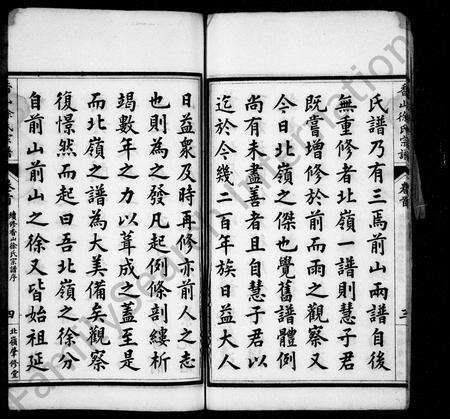 香山徐氏宗譜
卷首
三
氏譜乃有三焉前山兩譜自後
無重修者北嶺一譜則慧子君
既嘗增修於前而雨之觀察又
今日北嶺之傑也覺舊譜體例
尚有未盡善者且自慧子君以
迄於今幾二百年族日益大人
日益衆及時再修亦前人之志
也則為之發凡起例條剖縷析
竭數年之力以葺成之蓋至是
而北嶺之譜為大美備矣觀察
復憬然而起曰吾北嶺之徐分
自前山前山之徐又皆始祖延
香山徐氏宗譜
卷首
續修香山徐氏宗譜序
四
北嶺肇修堂
FamilySearch International